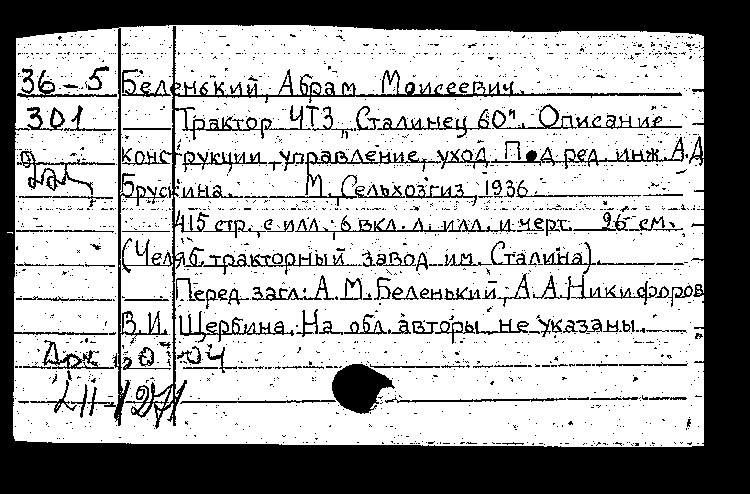 36-5 Беленький, Абрам Моисеевич.
301 Трактор ЧТЗ „Сталинец 60". Описание
конструкции, управление, уход. Под ред. инж. А.А
Брускина. М., Сельхозгиз, 1936.
415 стр., с илл.; 6 вкл. л. илл. и черт. 26 см.
(Челяб. тракторный завод им. Сталина).
Перед загл: А.М. Беленький, А.А. Никифоров
В.И. Щербина. На обл. авторы не указаны.